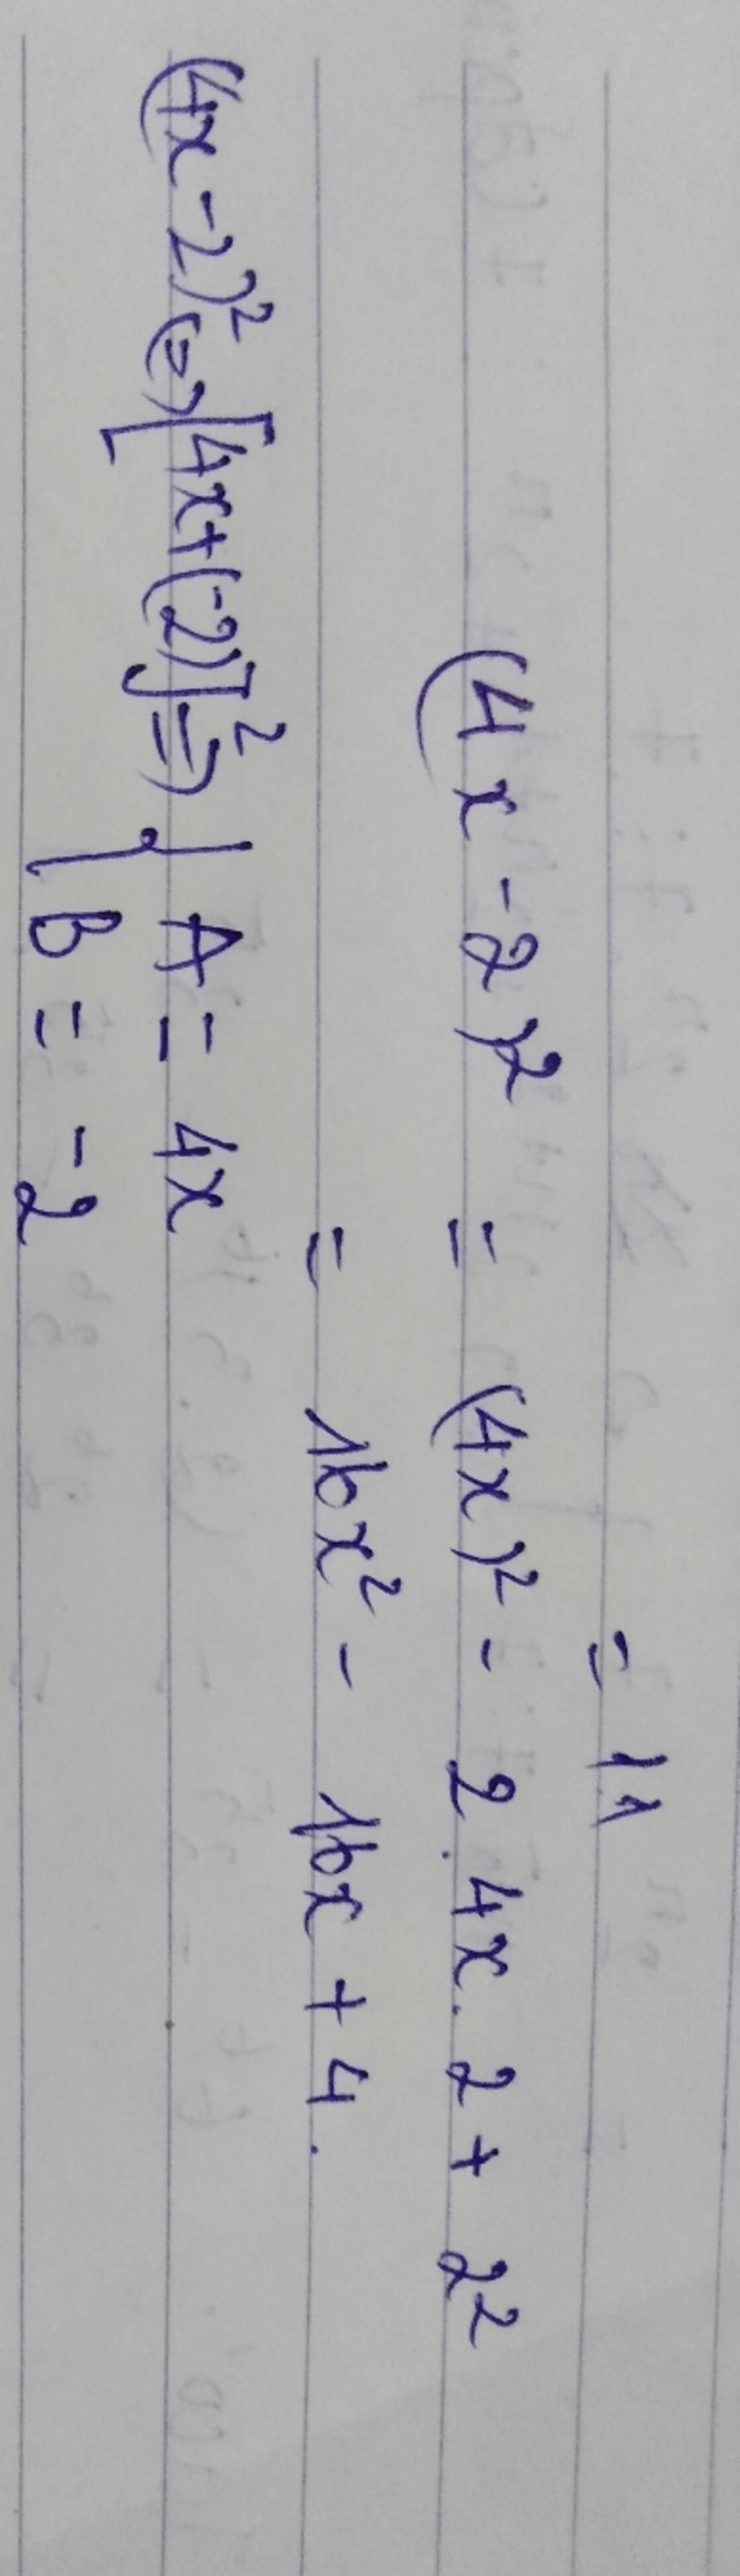 = 11
(4x - 2)² = (4x)² - 2.4x.2 + 2²
= 16x² - 16x + 4.
(4x - 2)² (=) [4x + (-2)]² => { A = 4x
B = -2